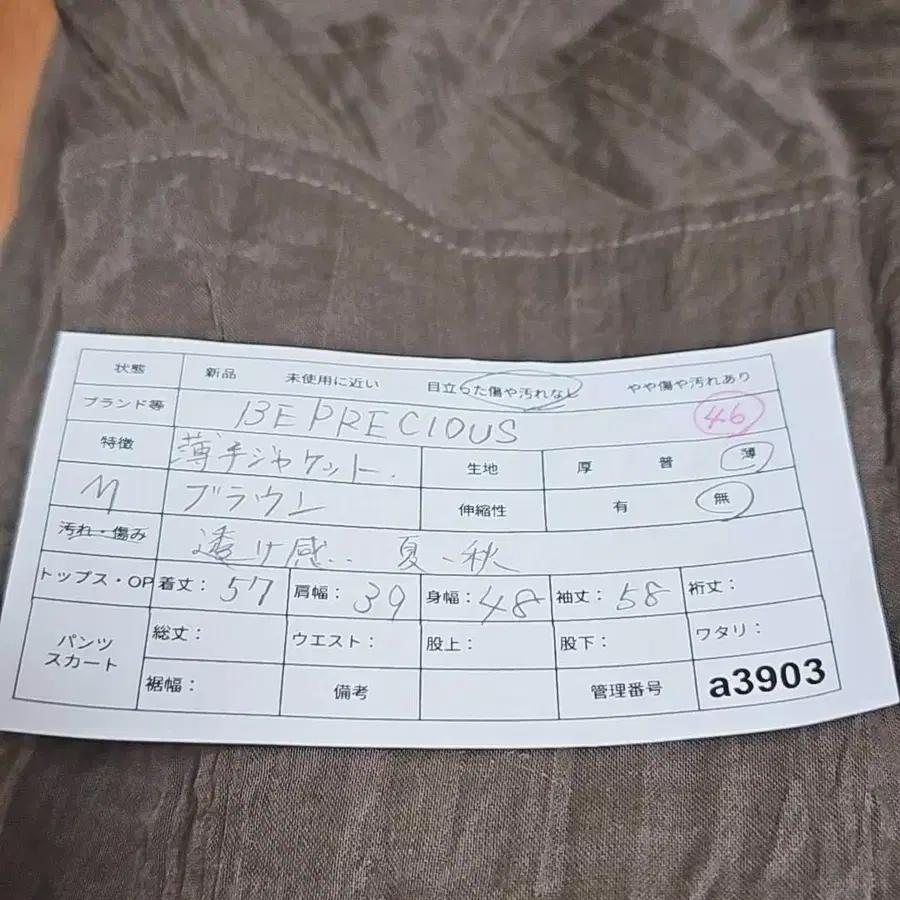 状態 新品 未使用に近い 目立った傷や汚れなし やや傷や汚れあり
ブランド等 BE PRECIOUS 46
特徴 薄手ジャケット. 生地 厚 普 薄
M ブラウン 伸縮性 有 無
汚れ・傷み 透け感.. 夏、秋
トップス・OP 着丈: 57 肩幅: 39 身幅: 48 袖丈: 58 裄丈:
パンツ スカート 総丈: ウエスト: 股上: 股下: ワタリ:
裾幅: 備考 管理番号 a3903